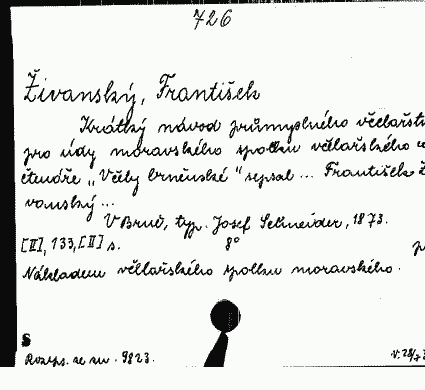 726
Živanský, František
Krátký návod průmyslného včelařst
pro údy moravského spolku včelařského a
čtenáře „Včely brněnské" sepsal ... František Ž
vanský ...
V Brně, typ. Josef Schneider, 1873.
[II], 133, [II] s. 8° p
Nákladem včelařského spolku moravského.
S
Rozeps. ze sv. 9823. V. 28/7